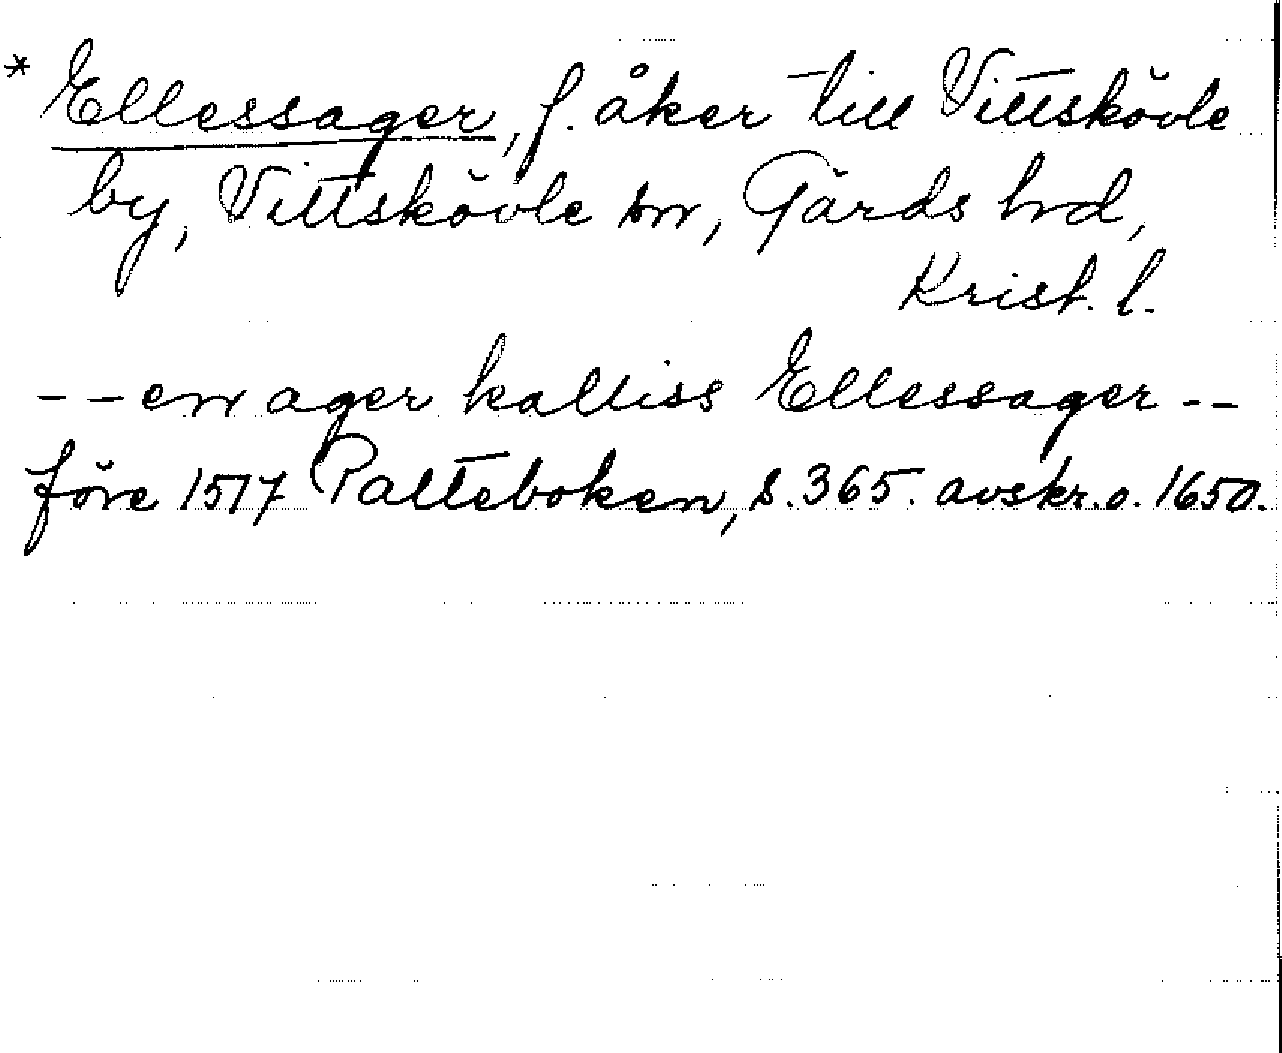 * Ellessager, f. åker till Vittskövle
by, Vittskövle sn, Gärds hd,
Krist. l.
-- en ager kalliss Ellessager --
före 1517 Palteboken, s. 365. avskr. o. 1650.